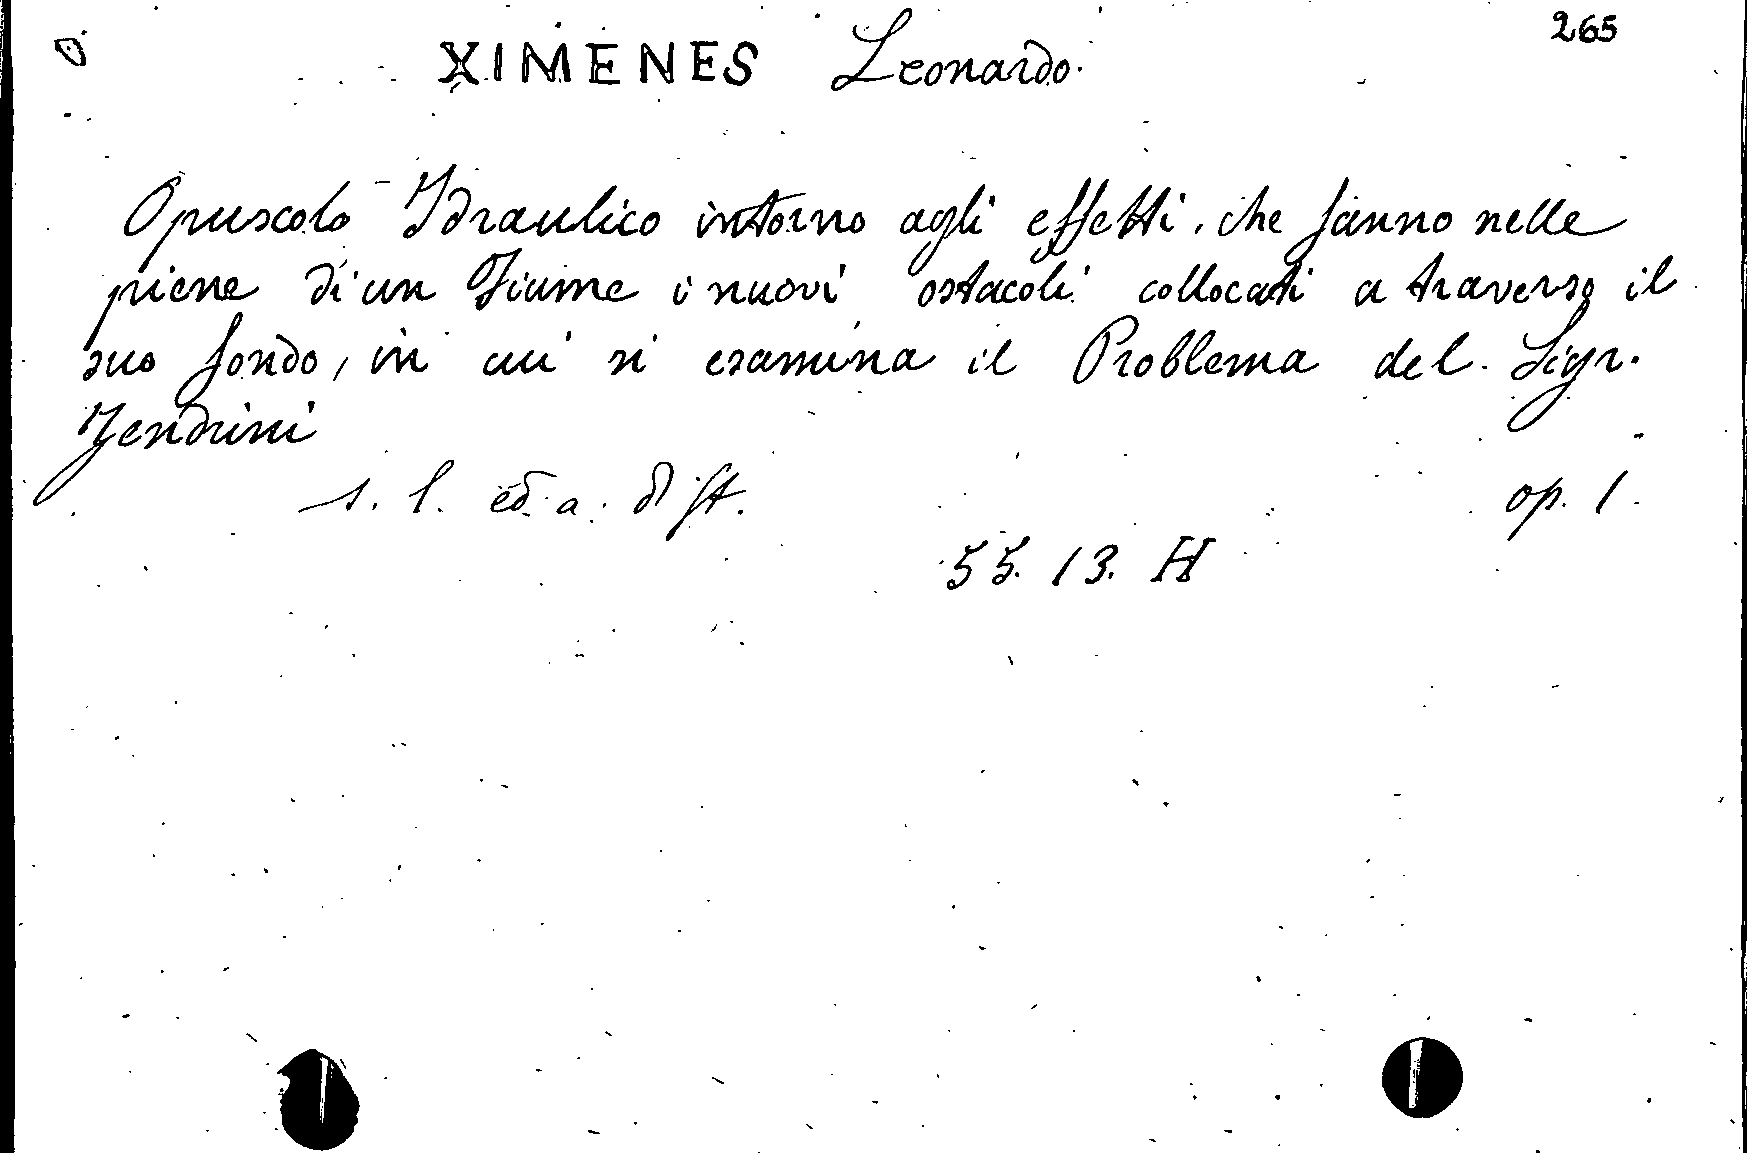 265
XIMENES Leonardo.
Opuscolo Idraulico intorno agli effetti, che fanno nelle
piene di un Fiume i nuovi ostacoli collocati a traverso il
suo fondo, in cui si esamina il Problema del Sigr.
Zendrini
s. l. ed a. di st. op. 1.
55. 13. H